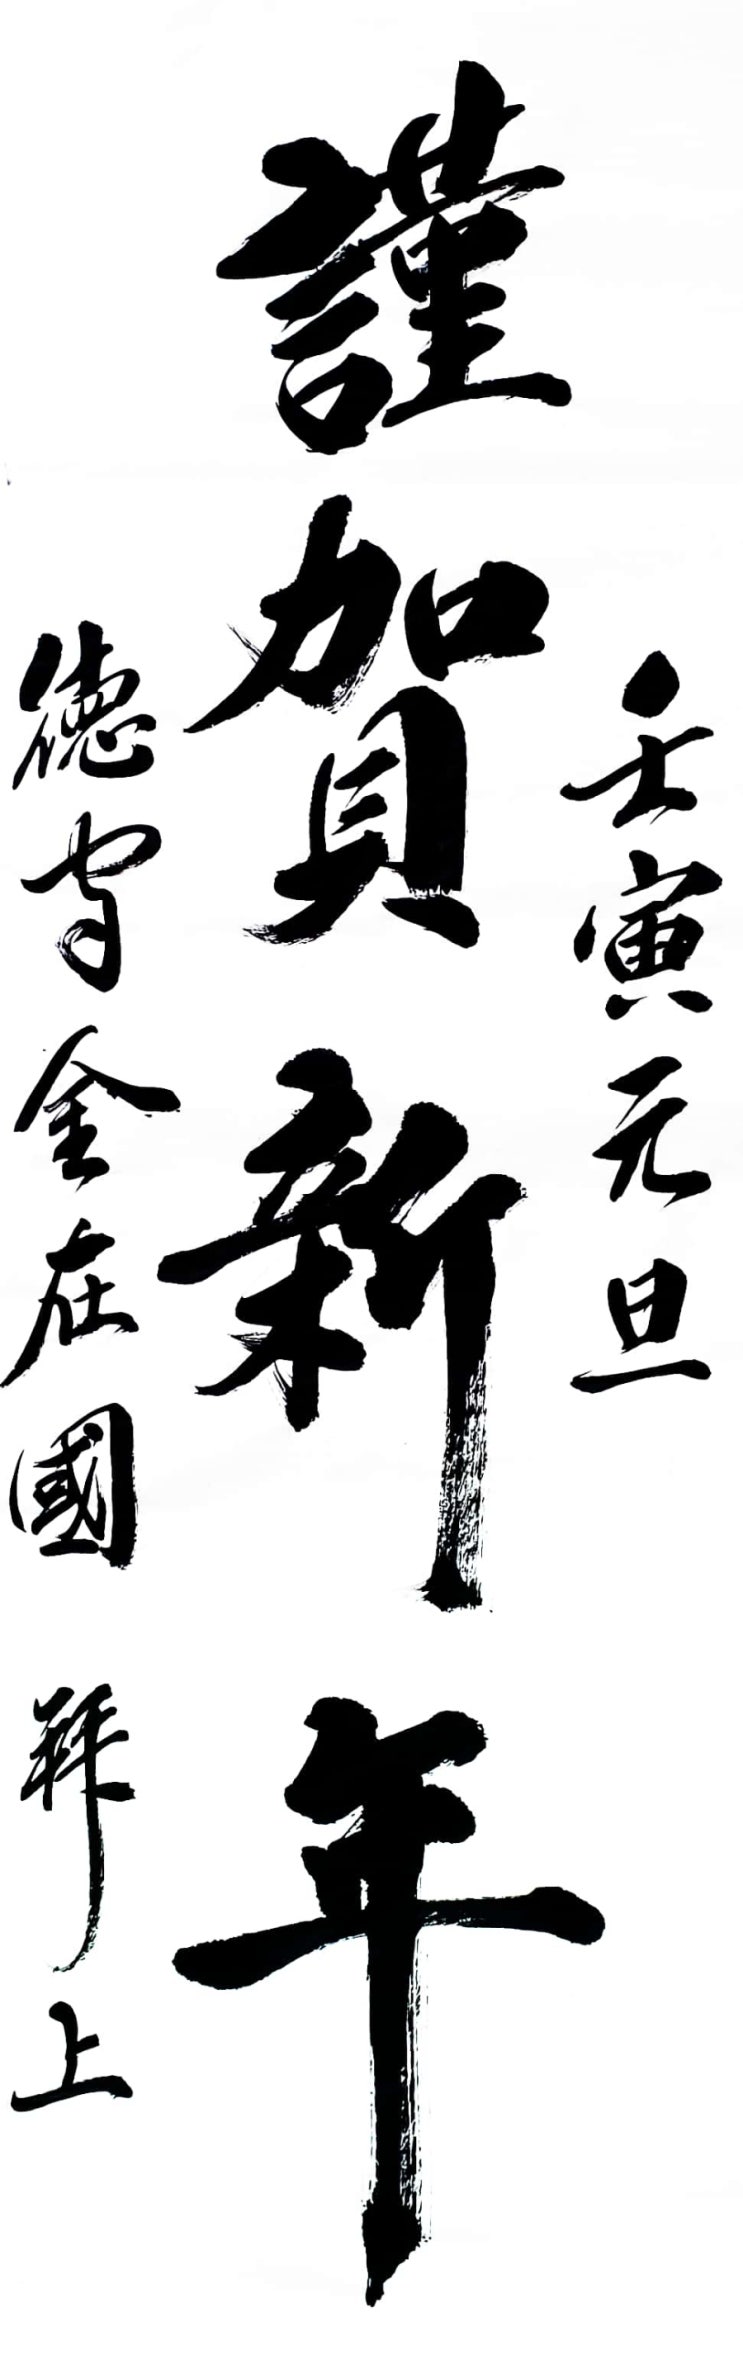 壬寅元旦
謹賀新年
德 金在國 拜上